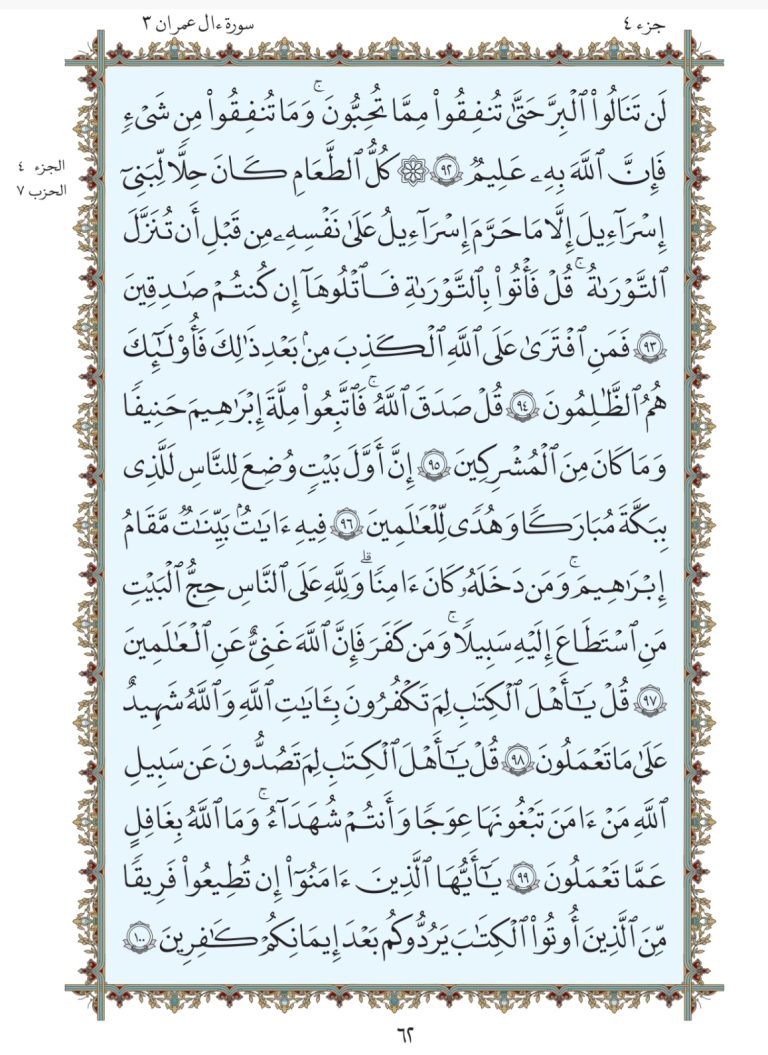 سورة ءال عمران ٣
جزء ٤
لَن تَنَالُوا۟ ٱلْبِرَّ حَتَّىٰ تُنفِقُوا۟ مِمَّا تُحِبُّونَ ۚ وَمَا تُنفِقُوا۟ مِن شَىْءٍ
فَإِنَّ ٱللَّهَ بِهِۦ عَلِيمٌ ٩٢ ۞ كُلُّ ٱلطَّعَامِ كَانَ حِلًّا لِّبَنِىٓ
الجزء ٤
الحزب ٧
إِسْرَٰٓءِيلَ إِلَّا مَا حَرَّمَ إِسْرَٰٓءِيلُ عَلَىٰ نَفْسِهِۦ مِن قَبْلِ أَن تُنَزَّلَ
ٱلتَّوْرَىٰةُ ۚ قُلْ فَأْتُوا۟ بِٱلتَّوْرَىٰةِ فَٱتْلُوهَآ إِن كُنتُمْ صَٰدِقِينَ
٩٣ فَمَنِ ٱفْتَرَىٰ عَلَى ٱللَّهِ ٱلْكَذِبَ مِنۢ بَعْدِ ذَٰلِكَ فَأُو۟لَٰٓئِكَ
هُمُ ٱلظَّٰلِمُونَ ٩٤ قُلْ صَدَقَ ٱللَّهُ ۗ فَٱتَّبِعُوا۟ مِلَّةَ إِبْرَٰهِيمَ حَنِيفًا
وَمَا كَانَ مِنَ ٱلْمُشْرِكِينَ ٩٥ إِنَّ أَوَّلَ بَيْتٍ وُضِعَ لِلنَّاسِ لَلَّذِى
بِبَكَّةَ مُبَارَكًا وَهُدًى لِّلْعَٰلَمِينَ ٩٦ فِيهِ ءَايَٰتٌۢ بَيِّنَٰتٌ مَّقَامُ
إِبْرَٰهِيمَ ۚ وَمَن دَخَلَهُۥ كَانَ ءَامِنًا ۗ وَلِلَّهِ عَلَى ٱلنَّاسِ حِجُّ ٱلْبَيْتِ
مَنِ ٱسْتَطَاعَ إِلَيْهِ سَبِيلًا ۚ وَمَن كَفَرَ فَإِنَّ ٱللَّهَ غَنِىٌّ عَنِ ٱلْعَٰلَمِينَ
٩٧ قُلْ يَٰٓأَهْلَ ٱلْكِتَٰبِ لِمَ تَكْفُرُونَ بِـَٔايَٰتِ ٱللَّهِ وَٱللَّهُ شَهِيدٌ
عَلَىٰ مَا تَعْمَلُونَ ٩٨ قُلْ يَٰٓأَهْلَ ٱلْكِتَٰبِ لِمَ تَصُدُّونَ عَن سَبِيلِ
ٱللَّهِ مَنْ ءَامَنَ تَبْغُونَهَا عِوَجًا وَأَنتُمْ شُهَدَآءُ ۗ وَمَا ٱللَّهُ بِغَٰفِلٍ
عَمَّا تَعْمَلُونَ ٩٩ يَٰٓأَيُّهَا ٱلَّذِينَ ءَامَنُوٓا۟ إِن تُطِيعُوا۟ فَرِيقًا
مِّنَ ٱلَّذِينَ أُوتُوا۟ ٱلْكِتَٰبَ يَرُدُّوكُم بَعْدَ إِيمَٰنِكُمْ كَٰفِرِينَ ١٠٠
٦٢